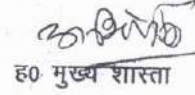 ह० मुख्य शास्ता